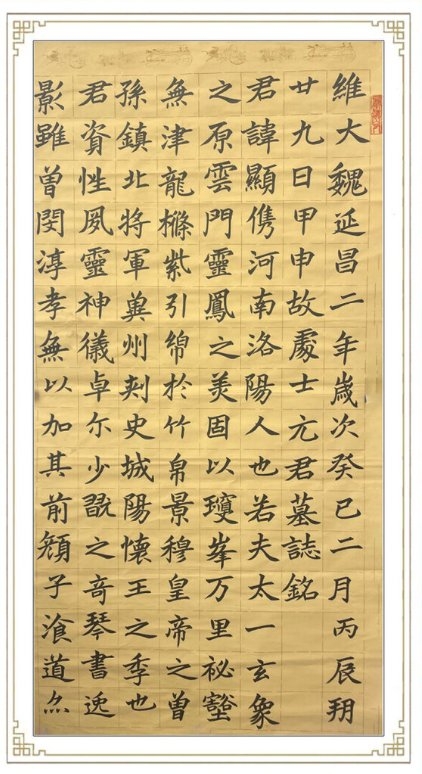 維大魏延昌二年歲次癸巳二月丙辰玥
廿九日甲申故處士元君墓誌銘
君諱顯儁河南洛陽人也若夫太一玄象
之原雲門靈鳳之美固以瓊峯万里祕壑
無津龍紫引綿於竹帛景穆皇帝之曾
孫鎮北將軍冀州刾史城陽懷王之季也
君資性夙靈神儀卓尒少翫之奇琴書逸
影雖曾閔淳孝無以加其前顔子湌道亦